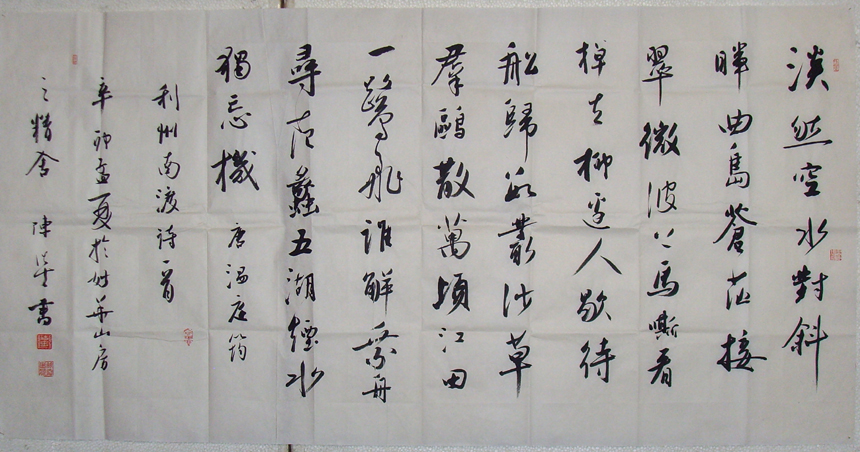 淡然空水對斜
暉曲島蒼茫接
翠微波上馬嘶看
棹去柳邊人歇待
船歸數叢沙草
羣鷗散萬頃江田
一鷺飛誰解乘舟
尋范蠡五湖煙水
獨忘機 唐溫庭筠
利州南渡詩一首
辛卯孟夏於山房
之精舍 陳書